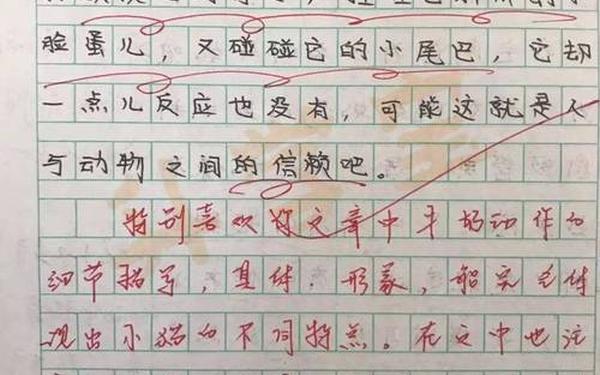 脸蛋儿，又碰碰它的小尾巴，它却
一点儿反应也没有，可能这就是人
与动物之间的信赖吧。
特别喜欢你文章中手的动作的
细节描写，具体，形象，能完全体
现出小猫的不同特点。在文中也注